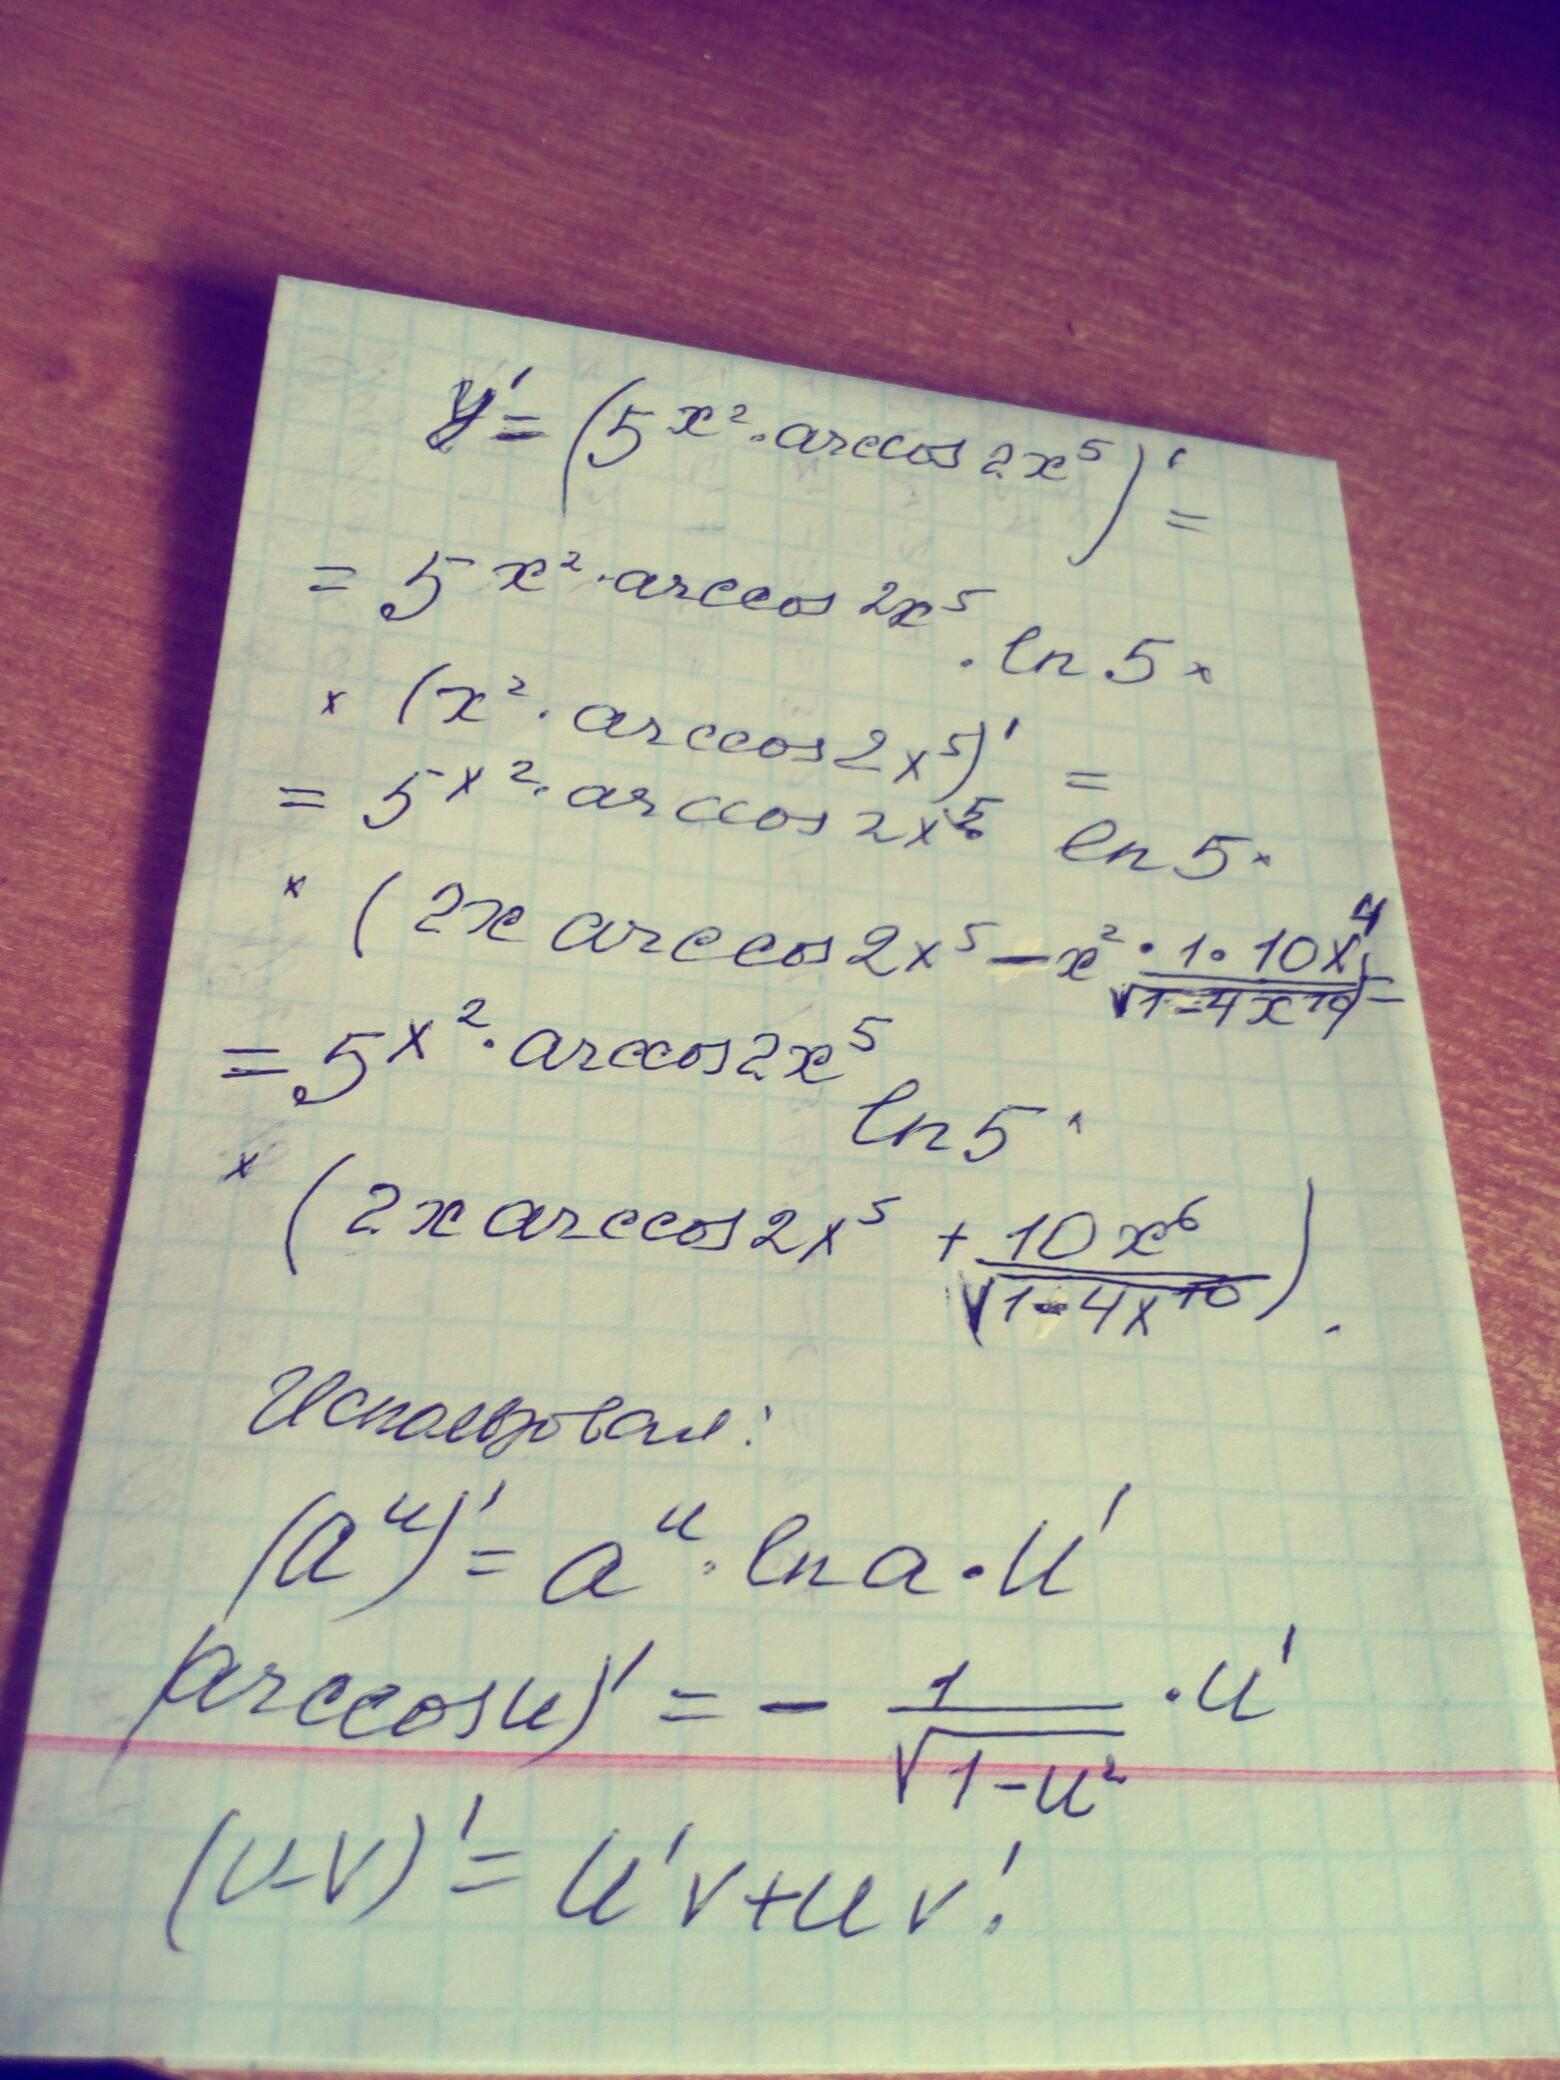 y' = (5^{x^2 · arccos 2x^5})' =
= 5^{x^2 · arccos 2x^5} · ln 5 ×
× (x^2 · arccos 2x^5)' =
= 5^{x^2 · arccos 2x^5} ln 5 ·
× (2x arccos 2x^5 − x^2 · \frac{1 · 10x^4}{\sqrt{1-4x^{10}}}) =
= 5^{x^2 · arccos 2x^5} ln 5 ·
× (2x arccos 2x^5 + \frac{10x^6}{\sqrt{1-4x^{10}}}).
Использовал:
(a^u)' = a^u · ln a · u'
(arccos u)' = − \frac{1}{\sqrt{1-u^2}} · u'
(u·v)' = u'v + uv'.